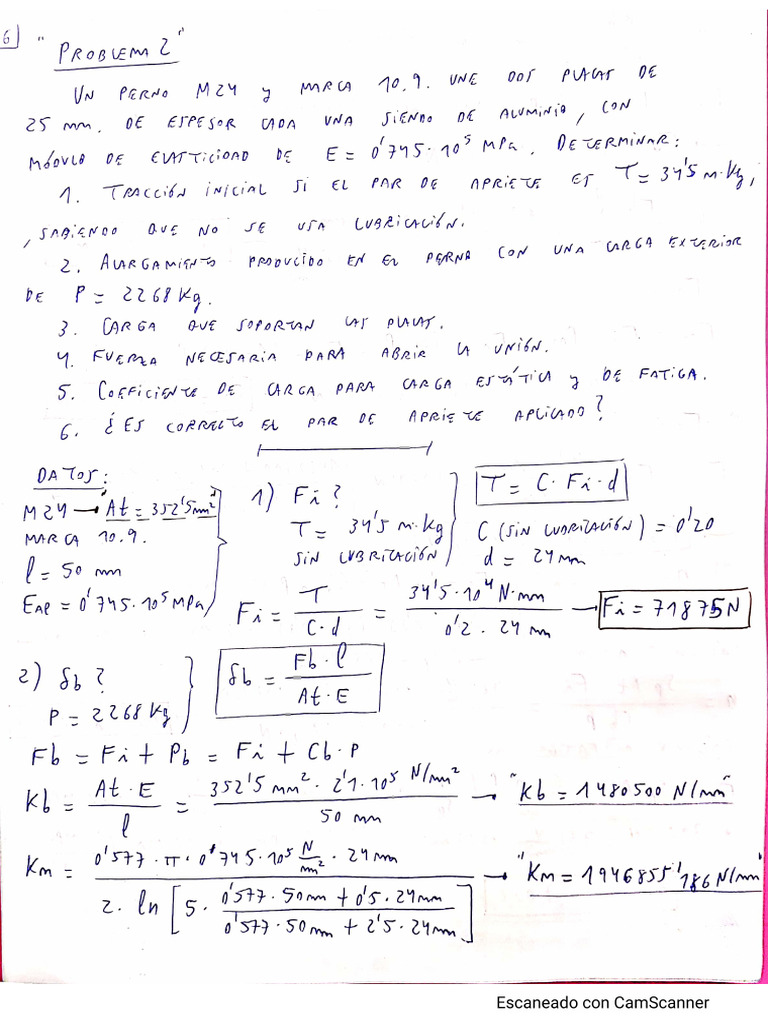 6
"PROBLEMA 2"
UN PERNO M24 y MARCA 10.9. UNE DOS PLACAS DE
25 mm. DE ESPESOR CADA UNA SIENDO DE ALUMINIO, CON
MÓDULO DE ELASTICIDAD DE E = 0'745·10⁵ MPa. DETERMINAR:
1. TRACCIÓN INICIAL SI EL PAR DE APRIETE ES T = 34'5 m·Kg,
, SABIENDO QUE NO SE USA LUBRICACIÓN.
2. ALARGAMIENTO PRODUCIDO EN EL PERNA CON UNA CARGA EXTERIOR
DE P = 2268 Kg.
3. CARGA QUE SOPORTAN LAS PLACAS.
4. FUERZA NECESARIA PARA ABRIR LA UNIÓN.
5. COEFICIENTE DE CARGA PARA CARGA ESTÁTICA y DE FATIGA.
6. ¿ES CORRECTO EL PAR DE APRIETE APLICADO?
DATOS:
M24 → At = 352'5 mm²
MARCA 10.9.
l = 50 mm
EAP = 0'745·10⁵ MPa
1) Fi?
T = 34'5 m·Kg
SIN LUBRICACIÓN
T = C·Fi·d
C (SIN LUBRICACIÓN) = 0'20
d = 24 mm
Fi = T / C·d = 34'5·10⁴ N·mm / 0'2·24 mm → Fi = 71875 N
2) δb?
P = 2268 Kg
δb = Fb·l / At·E
Fb = Fi + Pb = Fi + Cb·P
Kb = At·E / l = 352'5 mm²·2'1·10⁵ N/mm² / 50 mm → "Kb = 1480500 N/mm"
Km = 0'577·π·0'745·10⁵ N/mm²·24 mm / 2·ln[5·0'577·50mm + 0'5·24mm / 0'577·50mm + 2'5·24mm] → "Km = 1946855'186 N/mm"
Escaneado con CamScanner